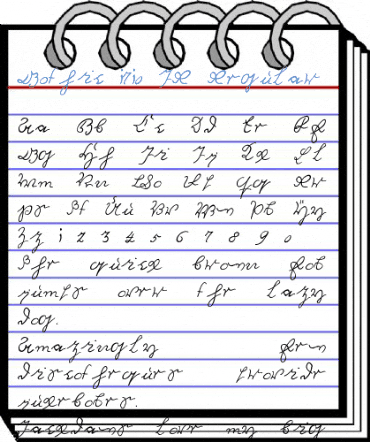 Regular
Aa Bb Cc Dd Ee Ff
Gg Hh Ii Jj Kk Ll
Mm Nn Oo Pp Qq Rr
Ss Tt Uu Vv Ww Xx Yy
Zz 1 2 3 4 5 6 7 8 9 0
The quick brown fox
jumps over the lazy
dog.
Amazingly few
discotheques provide
jukeboxes.
Jackdaws love my big